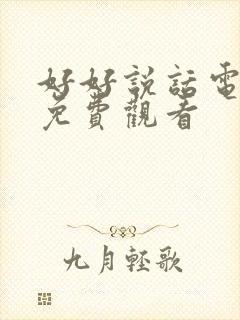 好好説話電
免費觀看
九月輕歌